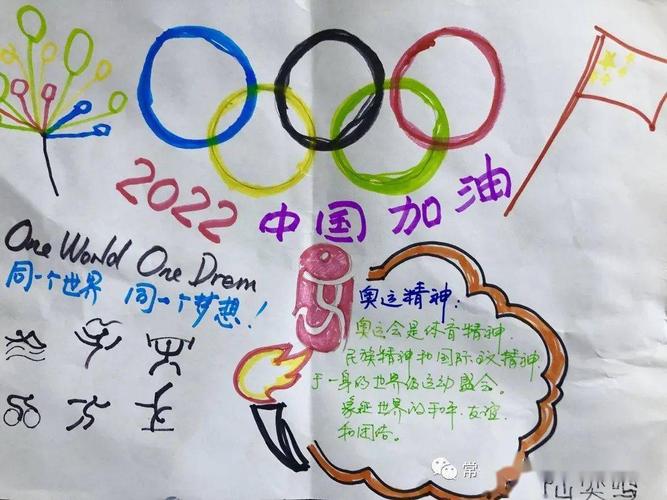 2022 中国加油
One World One Drem
同一个世界 同一个梦想！
奥运精神：
奥运会是体育精神、
民族精神和国际主义精神
于一身的世界级运动盛会。
象征世界的和平、友谊
和团结。
常